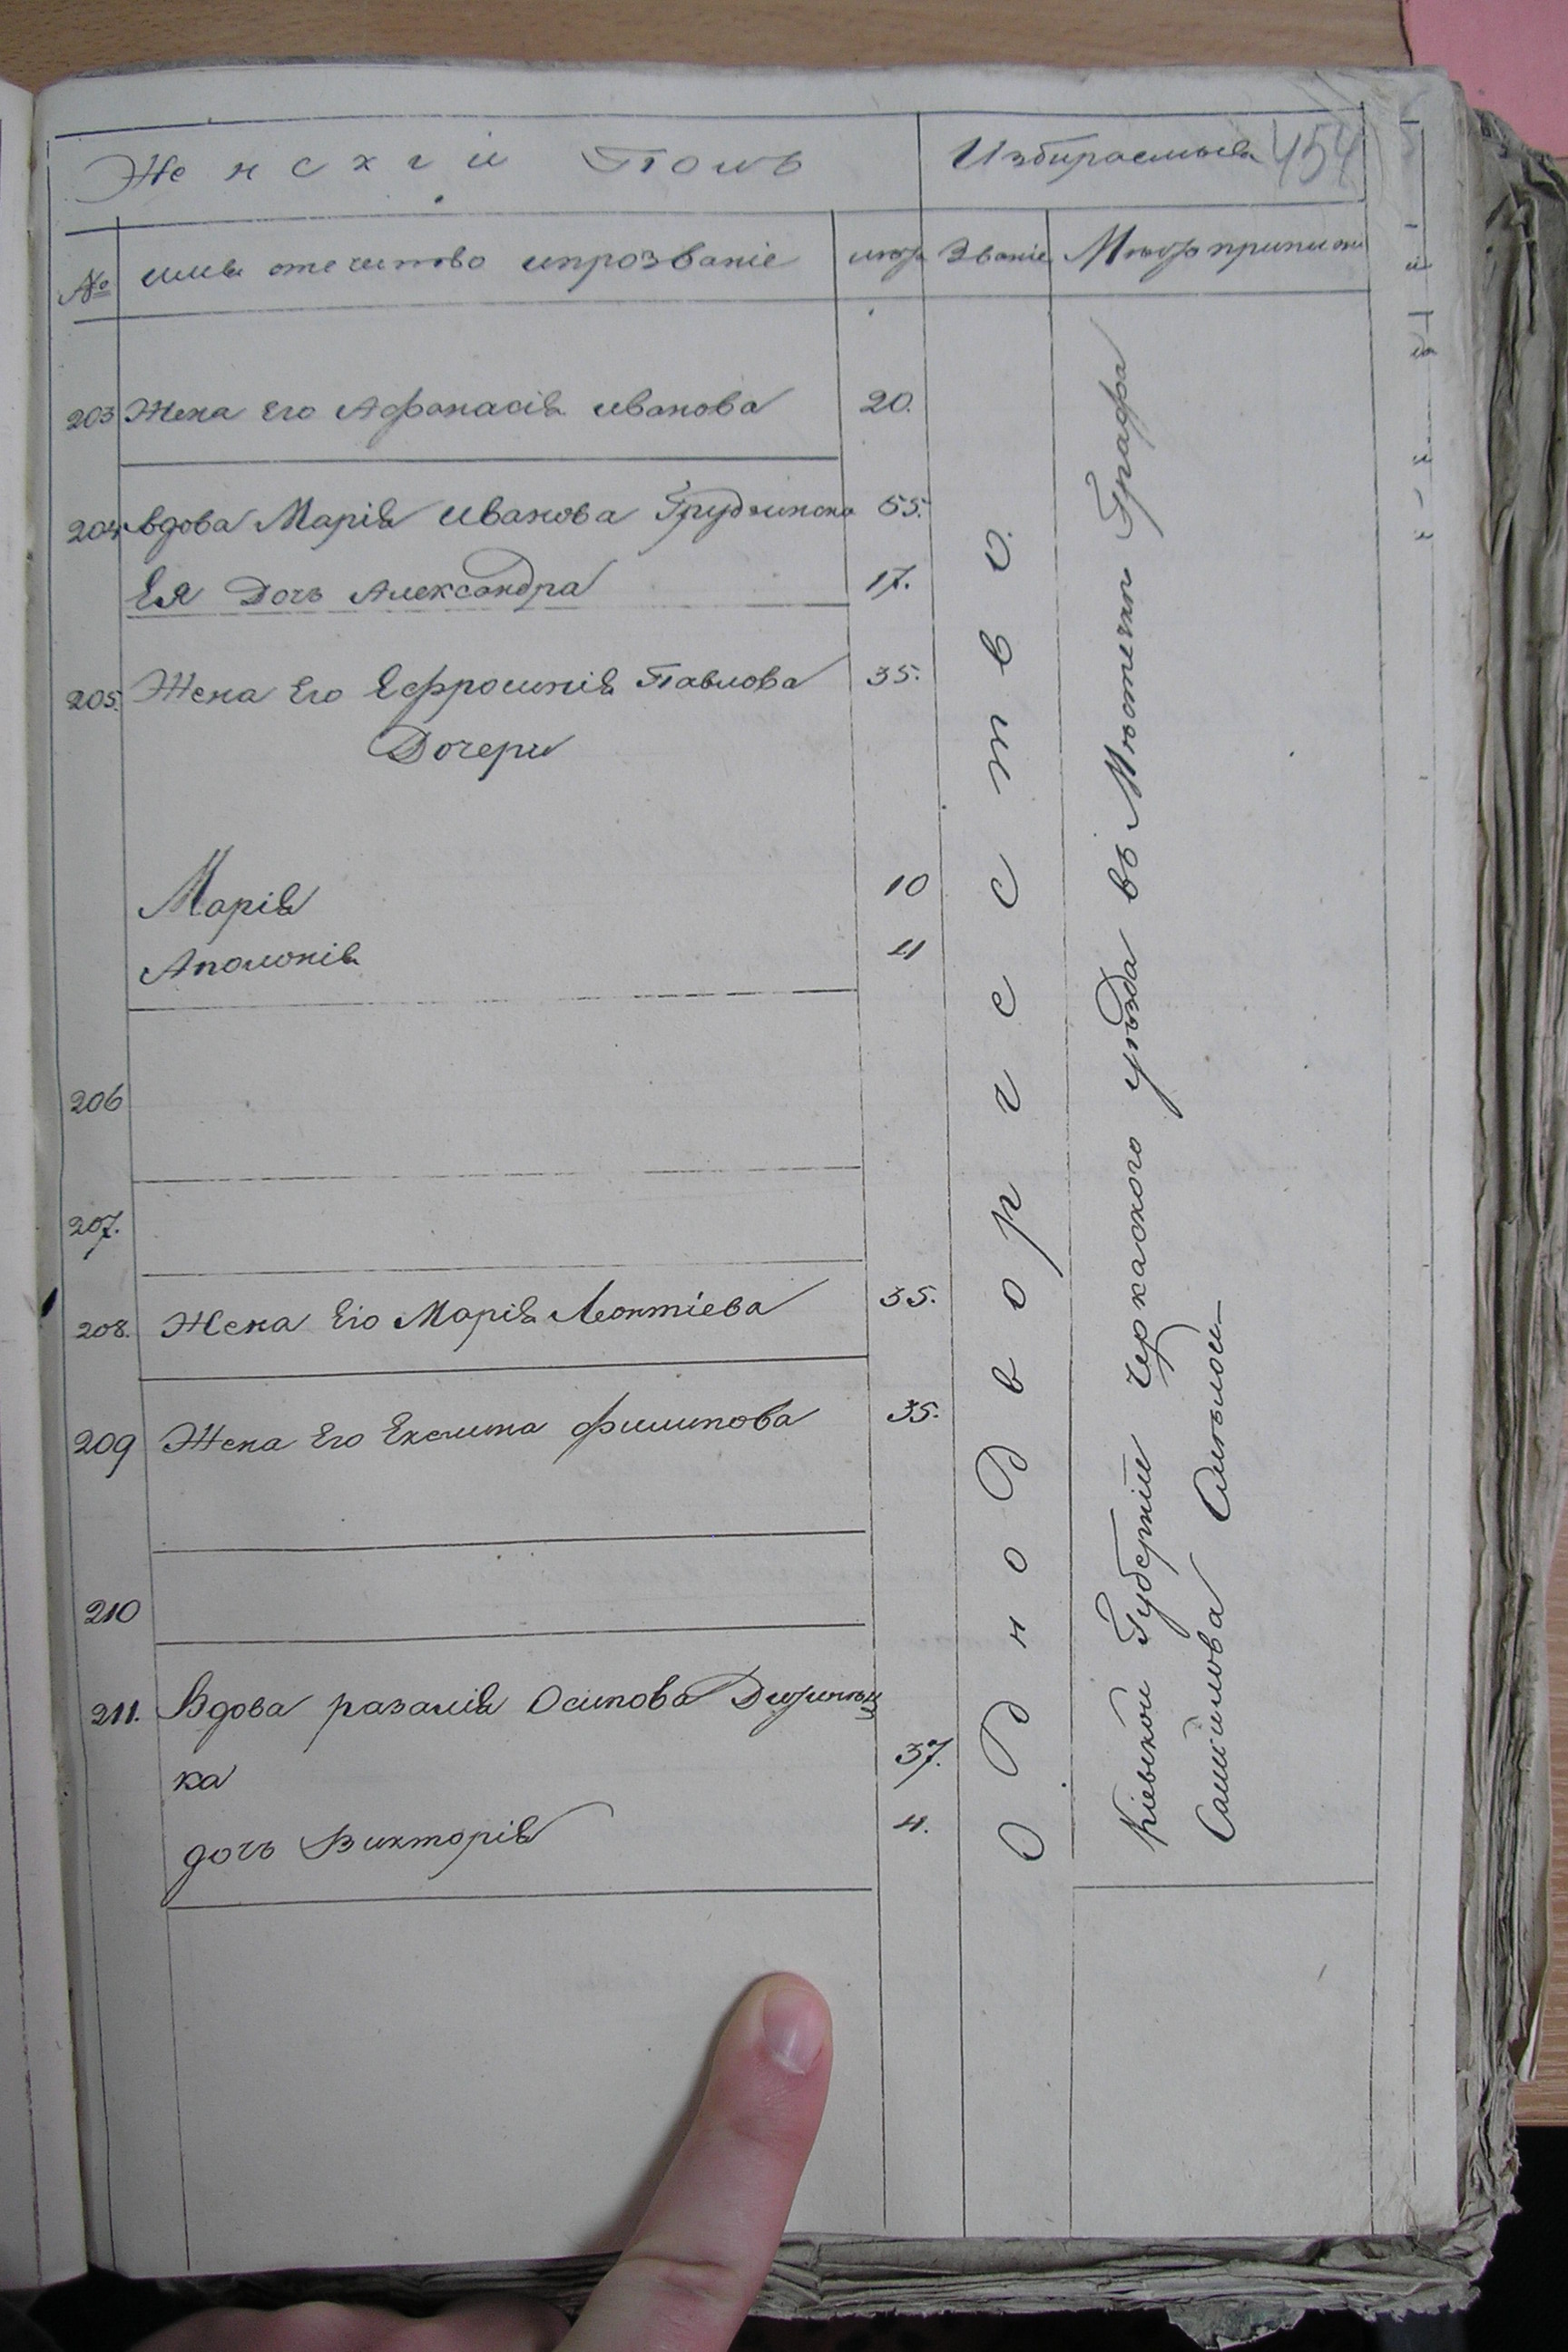 Женскій Полъ Избираемыя 454
№ имя отечество ипрозваніе лѣтъ Званіе Мѣсто приписки
203 Жена Его Афанасія иванова 20.
204 вдова Марія Иванова 55.
Ея Дочь Александра 17.
205. Жена Его Ефросинія Павлова 35.
Дочери
Марія 10
Аполонія 4
206
207.
208. Жена Его Марія Леонтіева 35.
209 Жена Его Екелина Филипова 35.
210
211. Вдова разалія Осипова
ка 37.
дочь Викторія 4.
Однодворчество.
Кіевской Губерніи Черкаского уѣзда въ Мѣстечкѣ Графа
Самоилова Смѣлой